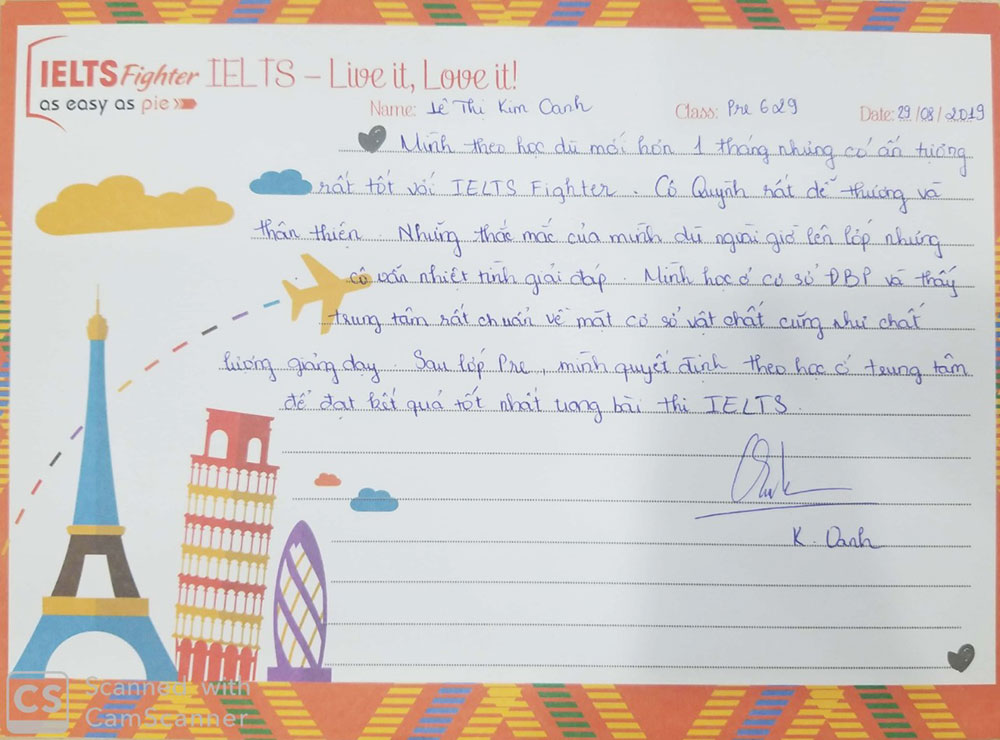 IELTS Fighter IELTS – Live it, Love it!
as easy as pie
Name: Lê Thị Kim Oanh Class: Pre 629 Date: 29/08/2019
Mình theo học dù mới hơn 1 tháng nhưng có ấn tượng
rất tốt với IELTS Fighter. Cô Quỳnh rất dễ thương và
thân thiện. Những thắc mắc của mình dù ngoài giờ lên lớp nhưng
cô vẫn nhiệt tình giải đáp. Mình học ở cơ sở ĐBP và thấy
trung tâm rất chuẩn về mặt cơ sở vật chất cũng như chất
lượng giảng dạy. Sau lớp Pre, mình quyết định theo học ở trung tâm
để đạt kết quả tốt nhất trong bài thi IELTS.
K. Oanh
CS Scanned with
CamScanner